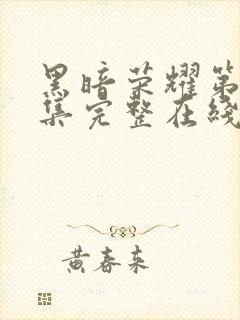 黑暗荣耀第
集完整在线
黄春来